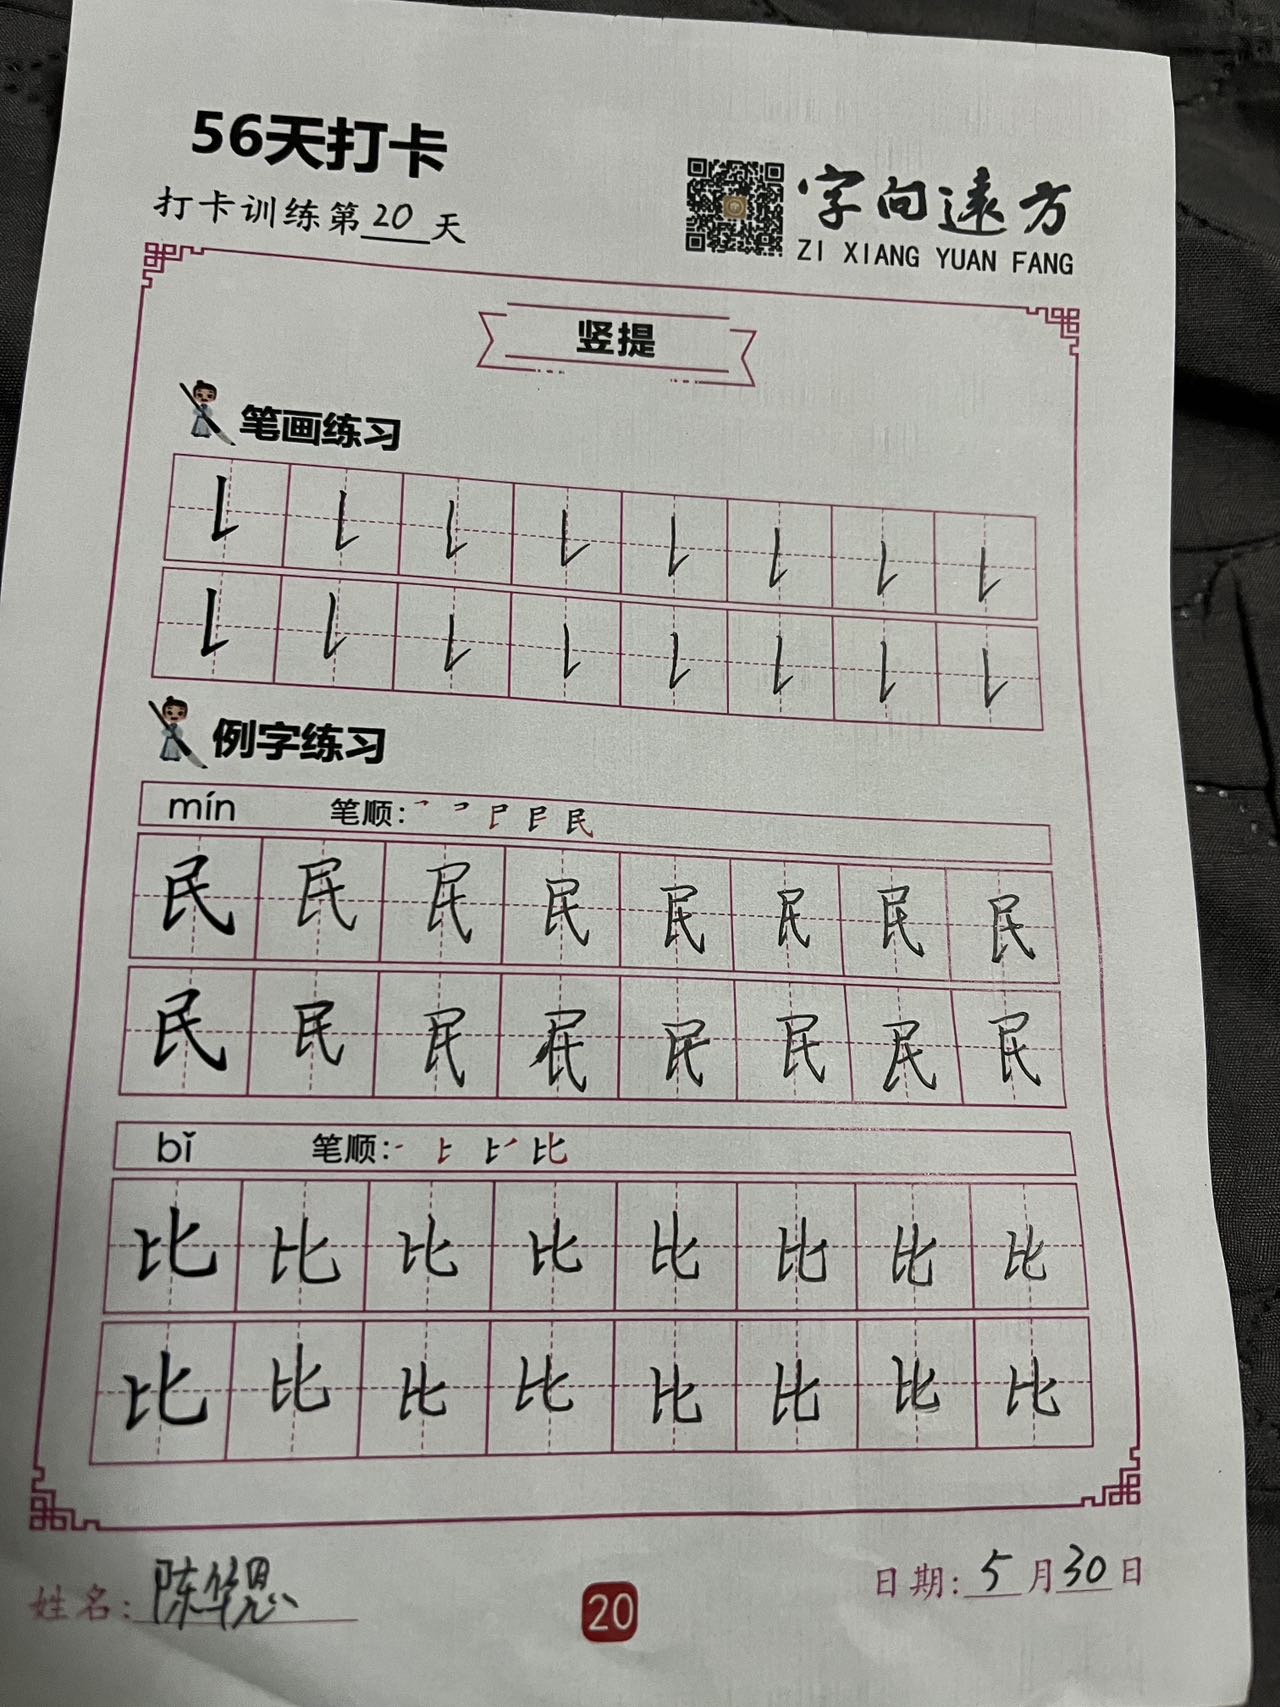 56天打卡
打卡训练第20天
字向遠方
ZI XIANG YUAN FANG
竖提
笔画练习
例字练习
mín 笔顺:
民 民 民 民 民 民 民 民
民 民 民 民 民 民 民 民
bǐ 笔顺:
比 比 比 比 比 比 比 比
比 比 比 比 比 比 比 比
姓名:陈华恩
20
日期:5月30日